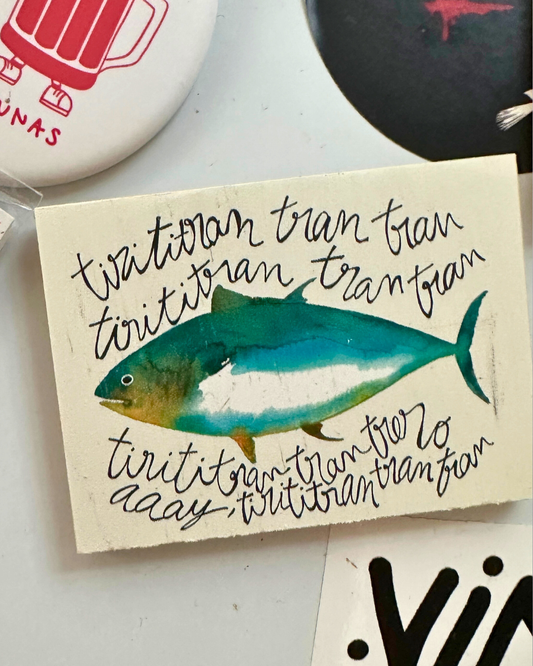 UNAS
tirititran tran tran
tirititran tran tran
tirititran tran trero
aaay, tirititran tran tran